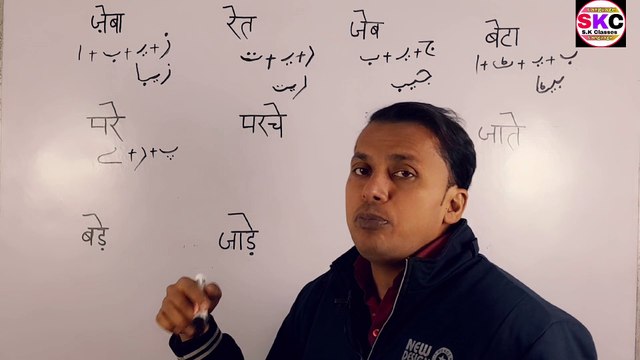 ज़ेबा रेत जेब बेटा
ز + ی + ب + ا ر + ی + ت ج + ی + ب ب + ی + ٹ + ا
زیبا ریت جیب بیٹا
परे परचे जाते
پ + ر + ے
बड़े जाड़े
SKC
S.K Classes
NEW